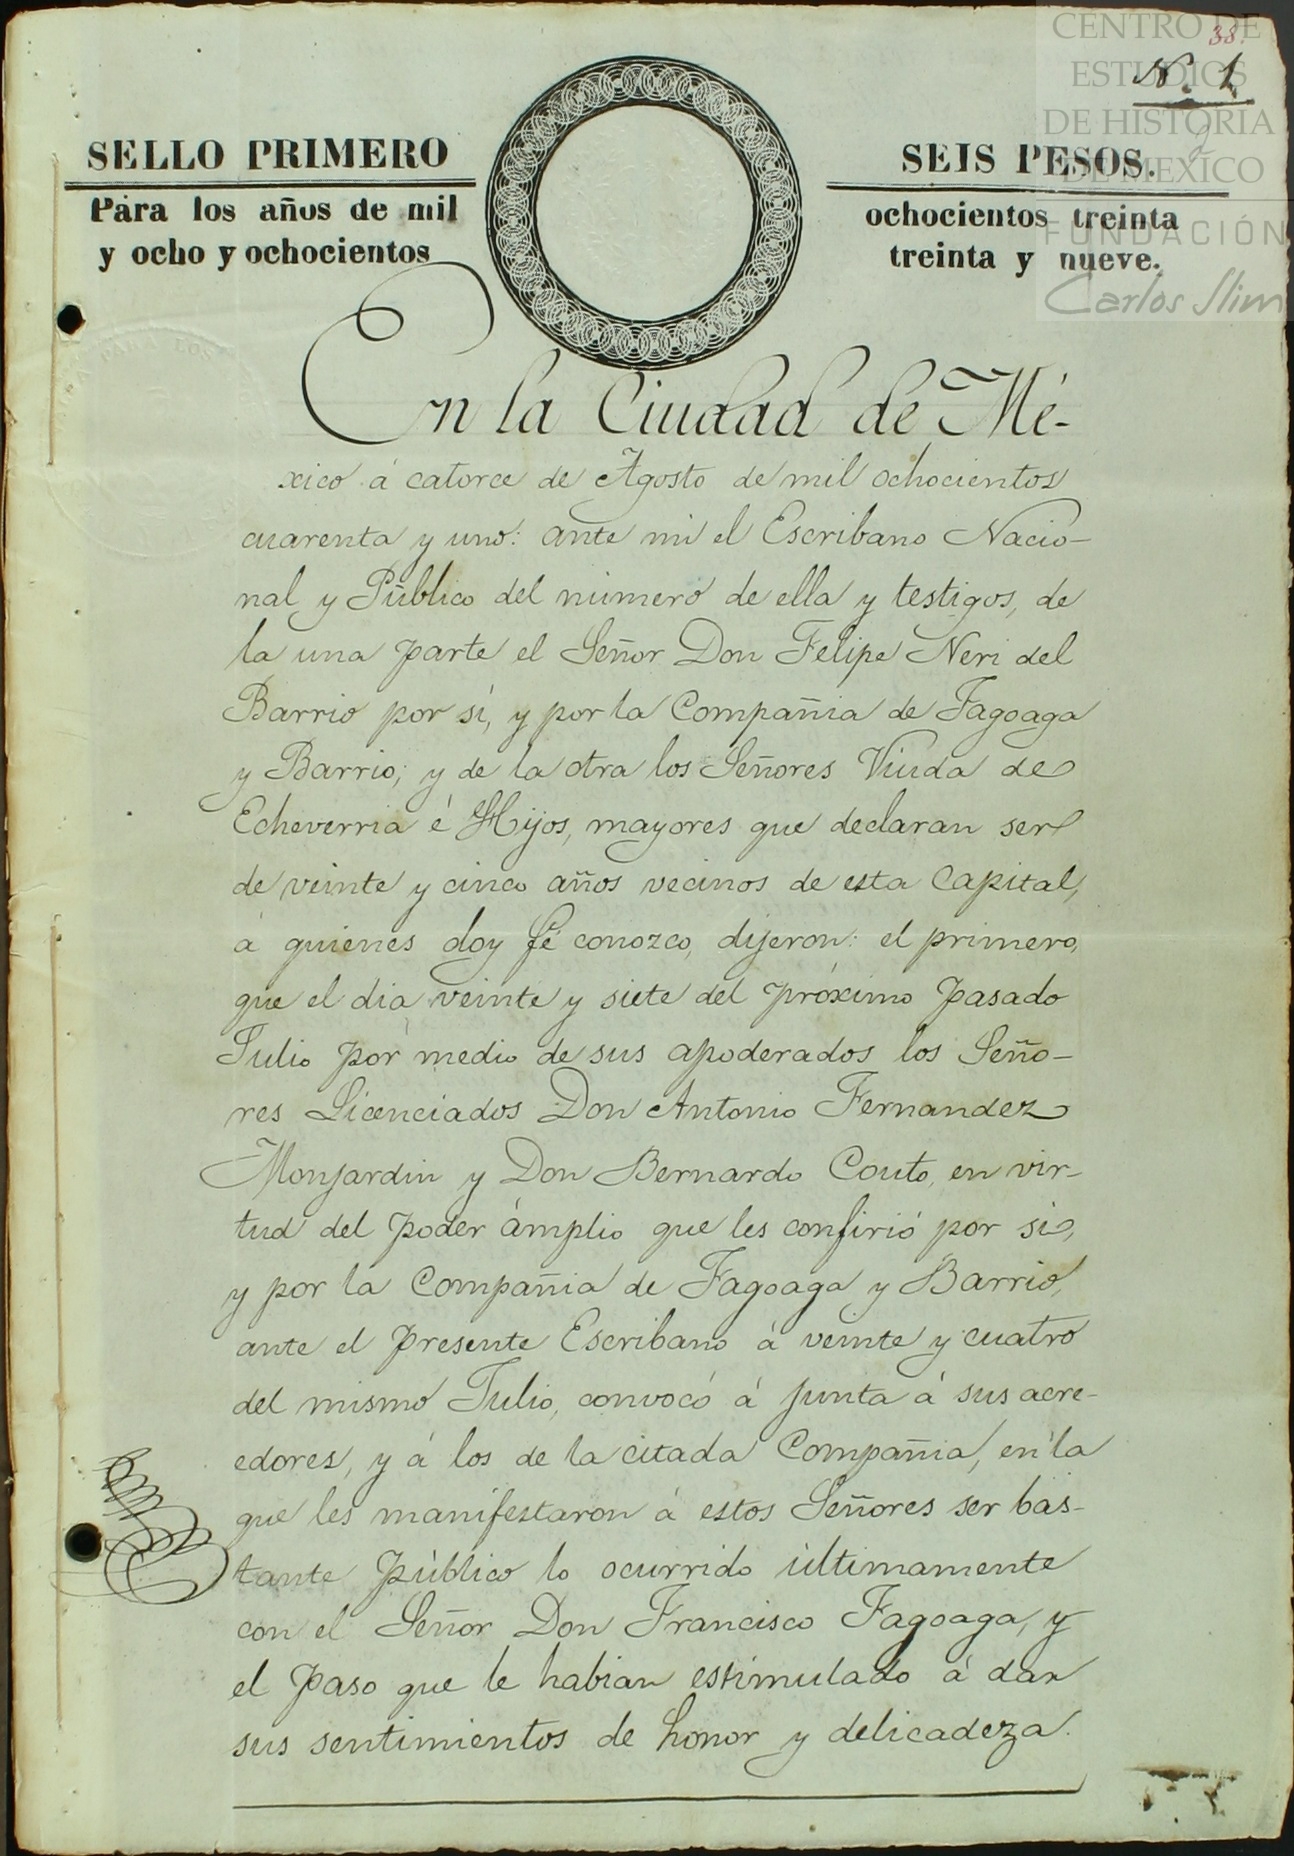 CENTRO DE
ESTUDIOS
DE HISTORIA
DE MÉXICO
FUNDACIÓN
Carlos Slim
38.
N. 1.
SELLO PRIMERO
SEIS PESOS.
Para los años de mil ochocientos treinta
y ocho y ochocientos treinta y nueve.
En la Ciudad de Mé-
xico á catorce de Agosto de mil ochocientos
cuarenta y uno: ante mi el Escribano Nacio-
nal y Público del número de ella y testigos, de
la una parte el Señor Don Felipe Neri del
Barrio por sí, y por la Compañia de Fagoaga
y Barrio; y de la otra los Señores Viuda de
Echeverria é Hijos, mayores que declaran ser
de veinte y cinco años vecinos de esta Capital,
á quienes doy fé conozco, dijeron: el primero,
que el dia veinte y siete del próximo pasado
Julio por medio de sus apoderados los Seño-
res Licenciados Don Antonio Fernandez
Monjardin y Don Bernardo Couto, en vir-
tud del poder ámplio que les confirió por si,
y por la Compañia de Fagoaga y Barrio,
ante el presente Escribano á veinte y cuatro
del mismo Julio, convocó á junta á sus acre-
edores, y á los de la citada Compañia, en la
que les manifestaron á estos Señores ser bas-
tante público lo ocurrido últimamente
con el Señor Don Francisco Fagoaga, y
el paso que le habian estimulado á dar
sus sentimientos de honor y delicadeza.